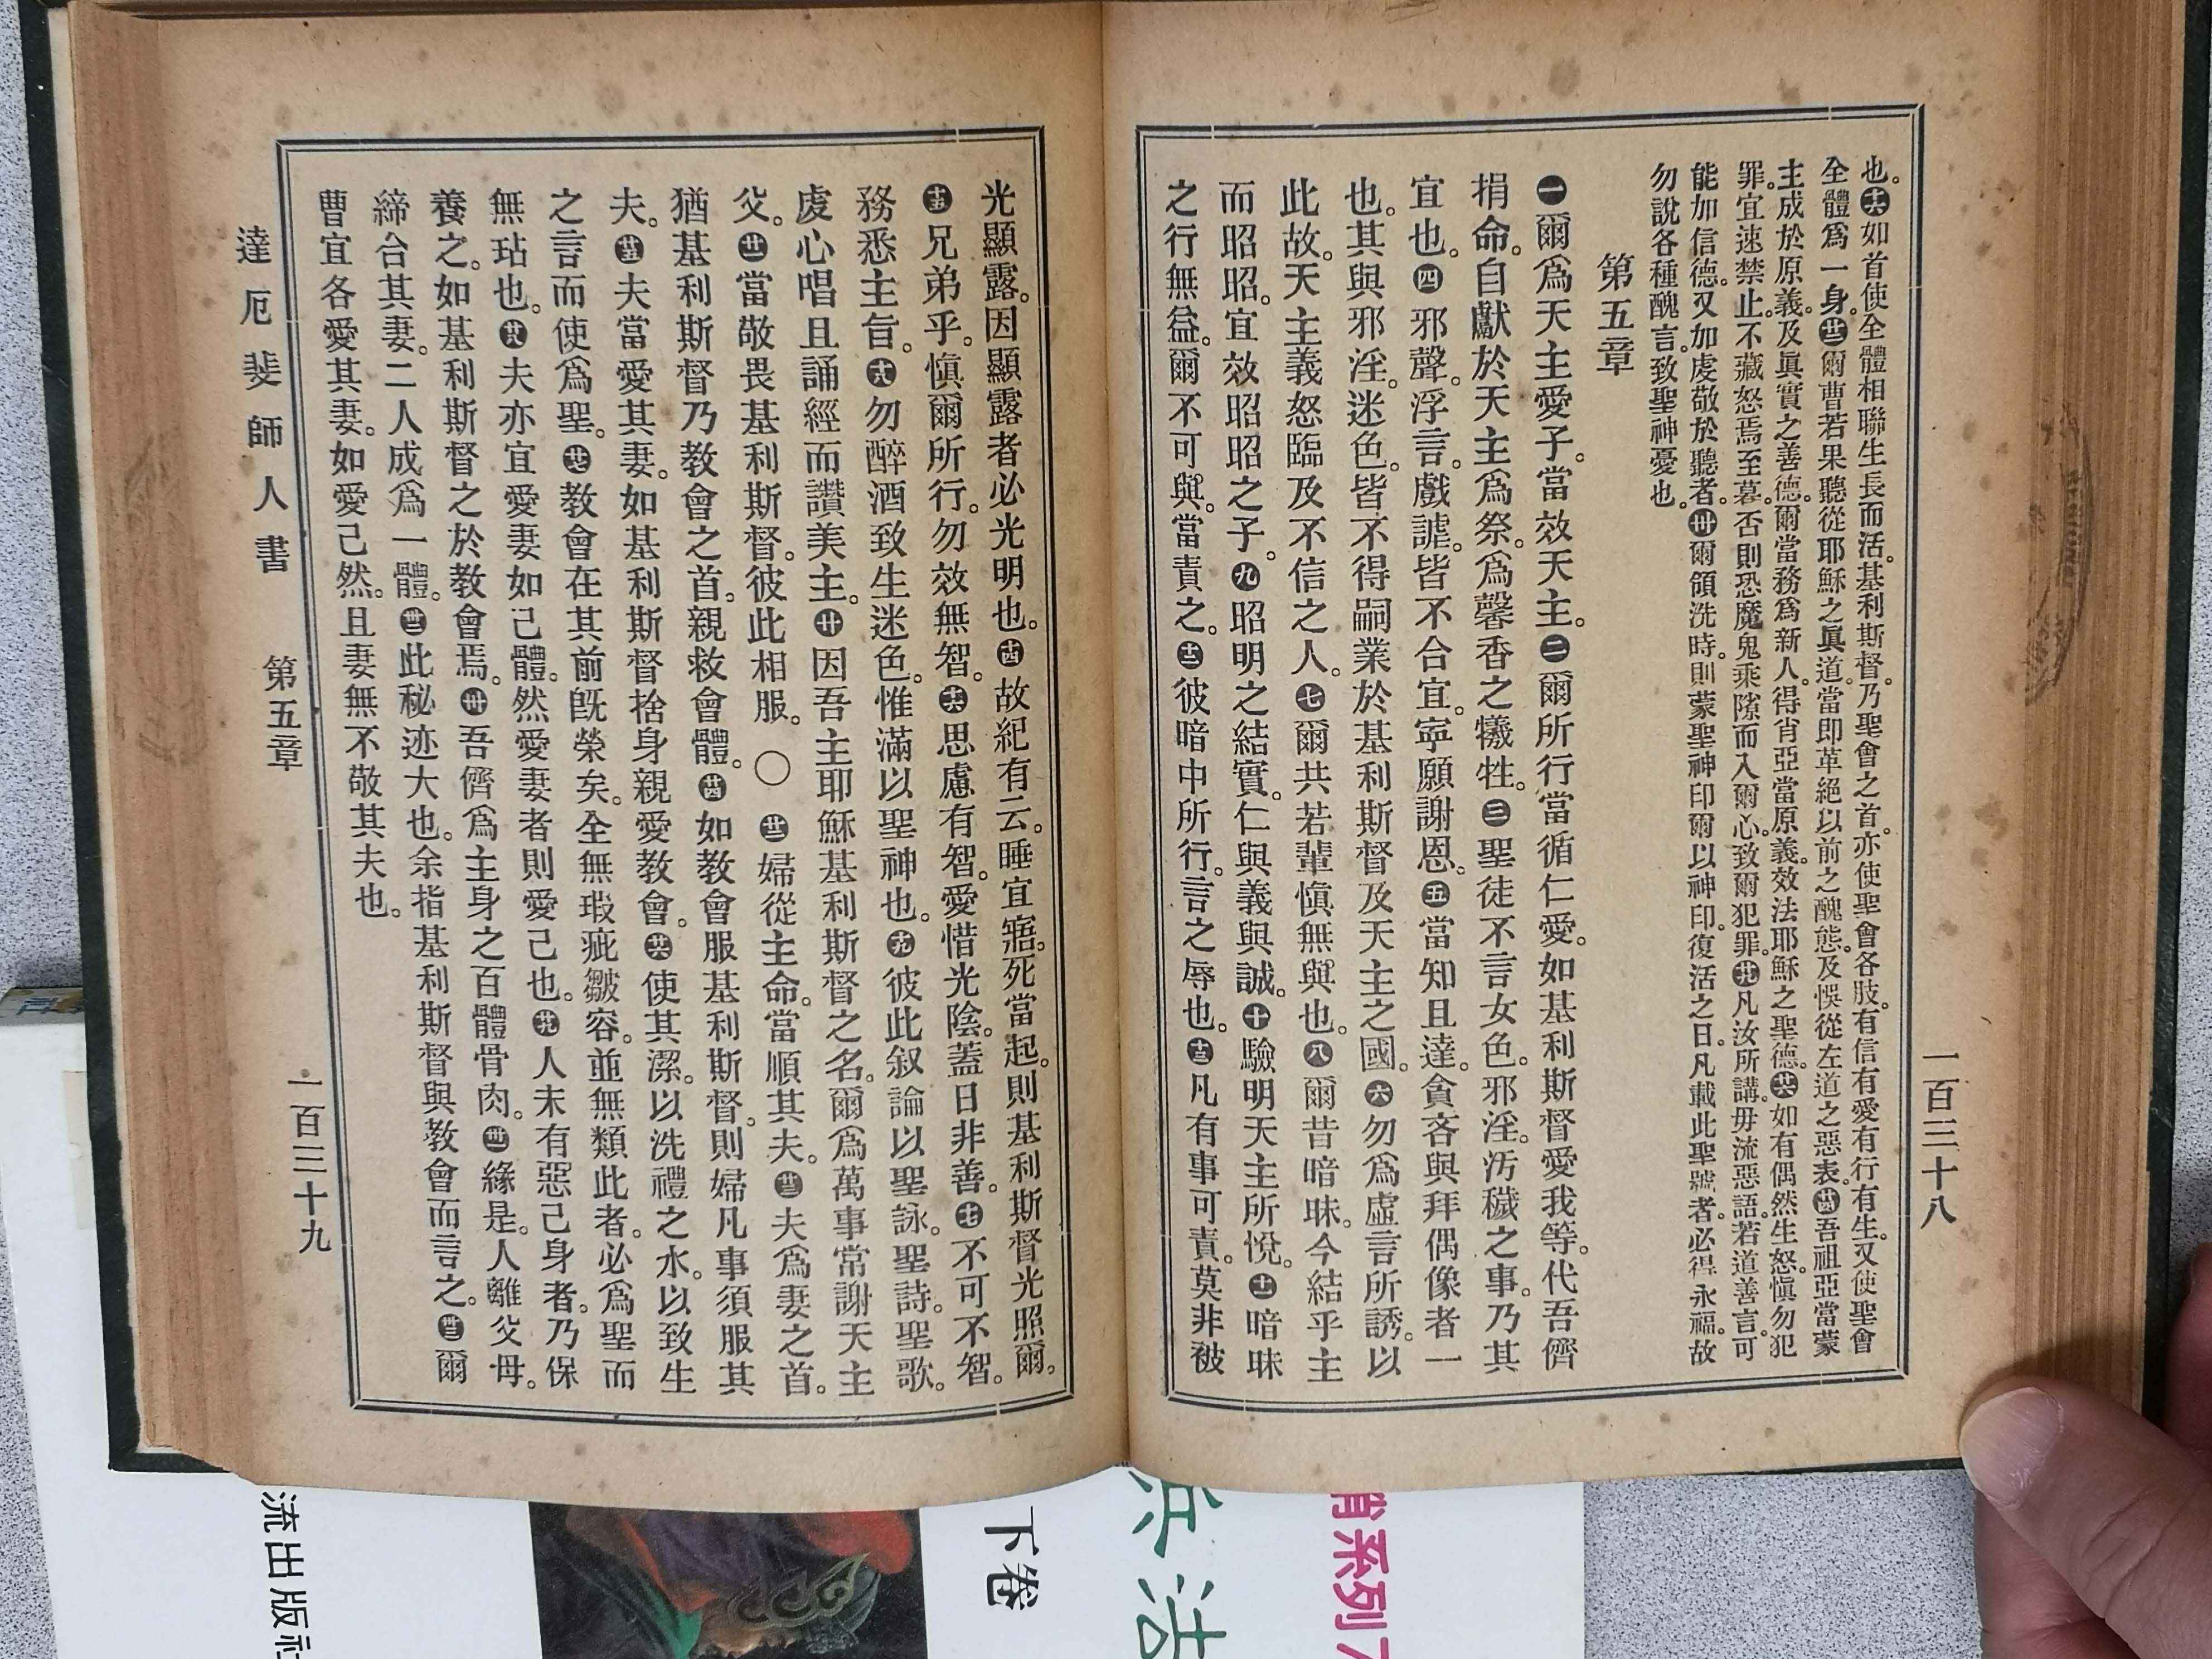 一百三十八
也。十六如首使全體相聯生長而活。基利斯督。乃聖會之首。亦使聖會各肢。有信有愛有行有生。又使聖會
全體爲一身。廿一爾曹若果聽從耶穌之眞道。當即革絕以前之醜態。及悞從左道之惡表。廿四吾祖亞當蒙
主成於原義。及眞實之善德。爾當務爲新人。得肖亞當原義。效法耶穌之聖德。廿六如有偶然生怒。愼勿犯
罪。宜速禁止。不藏怒焉至暮。否則恐魔鬼乘隙而入爾心。致爾犯罪。廿九凡汝所講。毋流惡語。若道善言。可
能加信德。又加虔敬於聽者。卅爾領洗時。則蒙聖神印爾以神印。復活之日。凡載此聖號者。必得永福。故
勿說各種醜言。致聖神憂也。
第五章
一爾爲天主愛子。當效天主。二爾所行當循仁愛。如基利斯督愛我等。代吾儕
捐命。自獻於天主爲祭。爲馨香之犧牲。三聖徒不言女色。邪淫。汚穢之事。乃其
宜也。四邪聲。浮言。戲謔。皆不合宜。寧願謝恩。五當知且達。貪吝與拜偶像者一
也。其與邪淫。迷色。皆不得嗣業於基利斯督及天主之國。六勿爲虛言所誘。以
此故。天主義怒臨及不信之人。七爾共若輩愼無與也。八爾昔暗昧。今結乎主
而昭昭。宜效昭昭之子。九昭明之結實。仁與義與誠。十驗明天主所悅。十一暗昧
之行無益。爾不可與。當責之。十二彼暗中所行。言之辱也。十三凡有事可責。莫非被
光顯露。因顯露者必光明也。十四故紀有云。睡宜寤。死當起。則基利斯督光照爾。
十五兄弟乎。愼爾所行。勿效無智。十六思慮有智。愛惜光陰。蓋日非善。十七不可不智。
務悉主旨。十八勿醉酒致生迷色。惟滿以聖神也。十九彼此叙論以聖詠。聖詩。聖歌。
虔心唱且誦經而讚美主。廿因吾主耶穌基利斯督之名。爾爲萬事常謝天主
父。廿一當敬畏基利斯督。彼此相服。〇廿二婦從主命。當順其夫。廿三夫爲妻之首。
猶基利斯督乃教會之首。親救會體。廿四如教會服基利斯督。則婦凡事須服其
夫。廿五夫當愛其妻。如基利斯督捨身親愛教會。廿六使其潔。以洗禮之水。以致生
之言而使爲聖。廿七教會在其前旣榮矣。全無瑕疵皺容。並無類此者。必爲聖而
無玷也。廿八夫亦宜愛妻如己體。然愛妻者則愛己也。廿九人未有惡己身者。乃保
養之。如基利斯督之於教會焉。卅吾儕爲主身之百體骨肉。卅一緣是。人離父母。
締合其妻。二人成爲一體。卅二此秘迹大也。余指基利斯督與教會而言之。卅三爾
曹宜各愛其妻。如愛己然。且妻無不敬其夫也。
達厄斐師人書 第五章 一百三十九
流出版社
下卷
兵法
销系列7